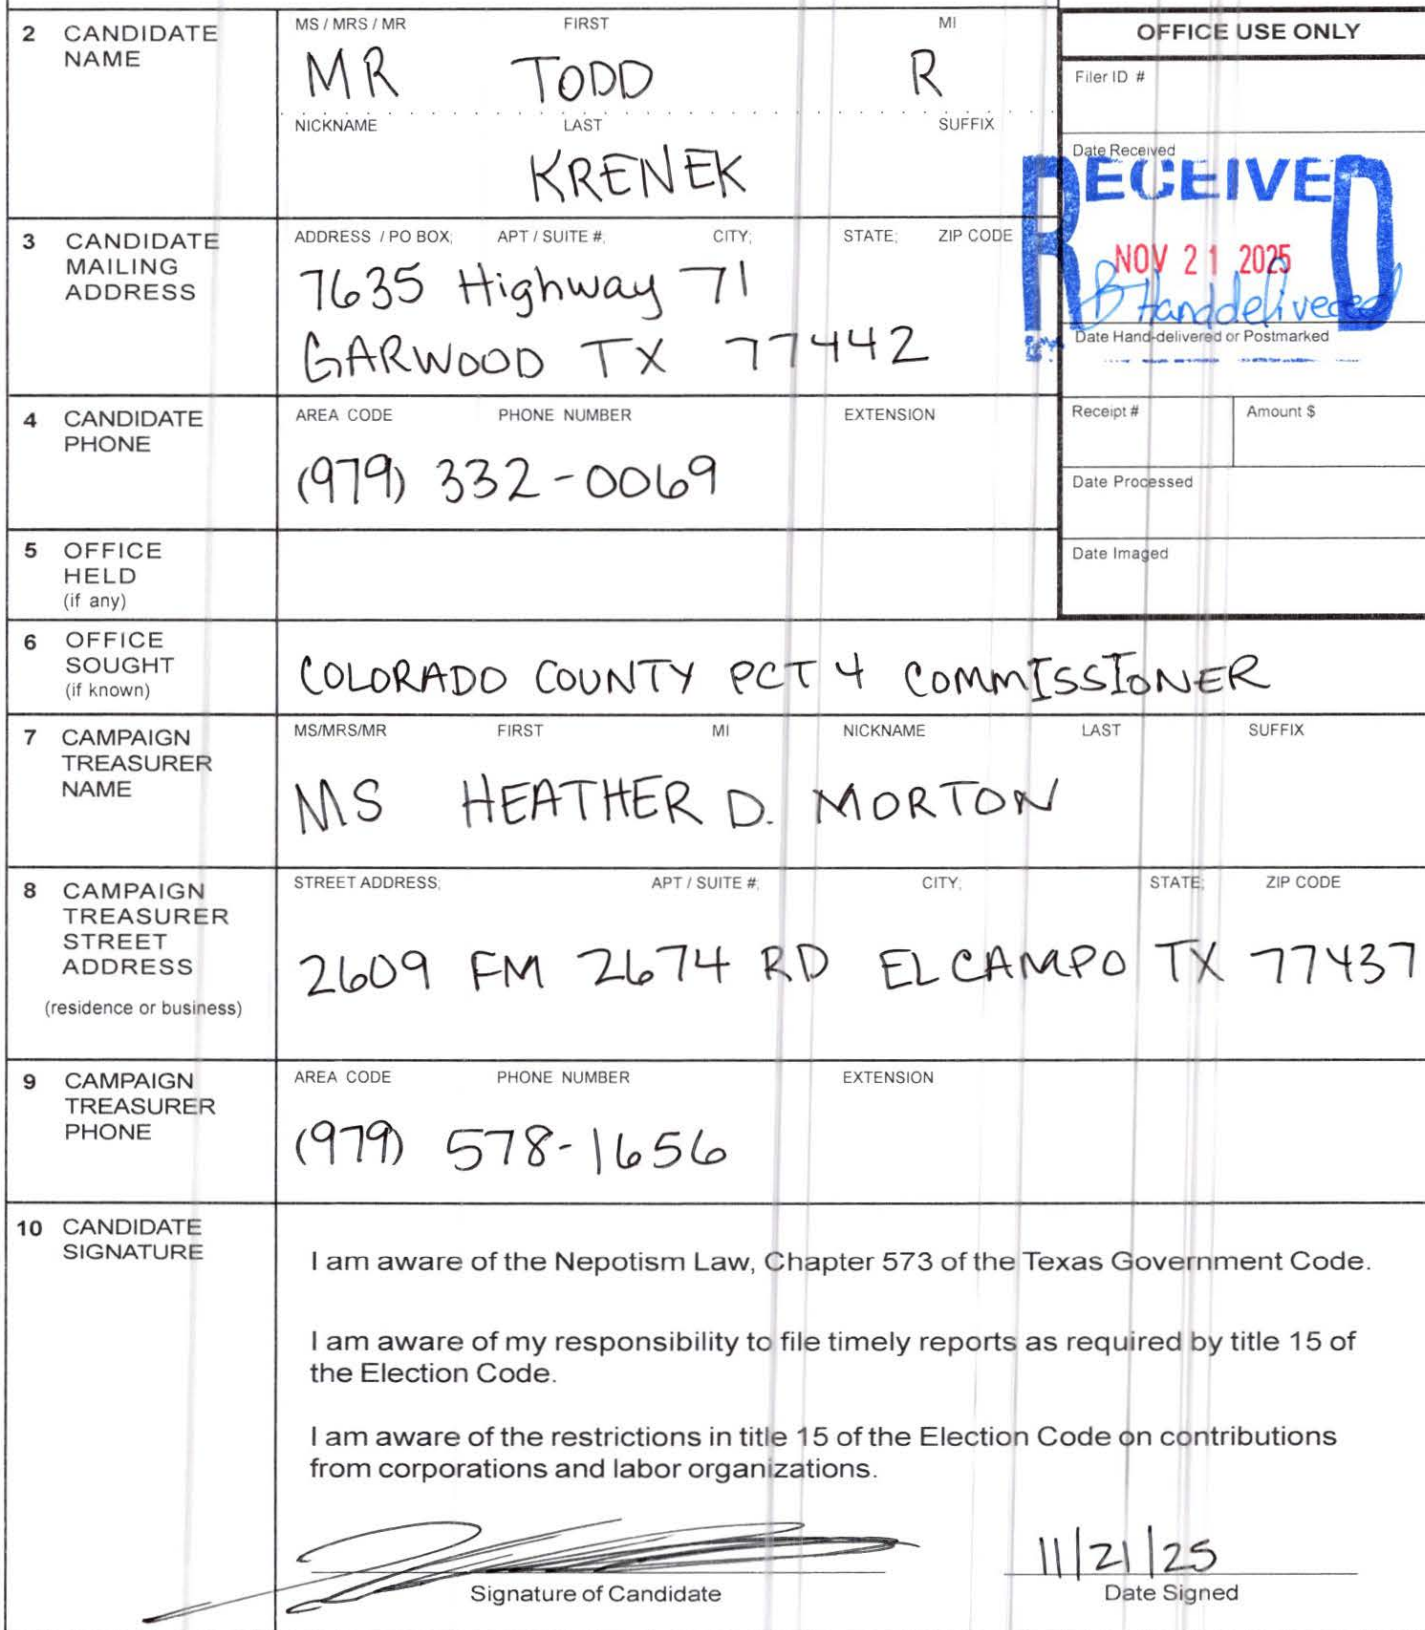 2 CANDIDATE NAME
MS / MRS / MR FIRST MI
MR TODD R
NICKNAME LAST SUFFIX
KRENEK
OFFICE USE ONLY
Filer ID #
Date Received
RECEIVED
NOV 21 2025
Handdelivered
Date Hand-delivered or Postmarked
Receipt # Amount $
Date Processed
Date Imaged
3 CANDIDATE MAILING ADDRESS
ADDRESS / PO BOX; APT / SUITE #; CITY; STATE; ZIP CODE
7635 Highway 71
GARWOOD TX 77442
4 CANDIDATE PHONE
AREA CODE PHONE NUMBER EXTENSION
(979) 332-0069
5 OFFICE HELD (if any)
6 OFFICE SOUGHT (if known)
COLORADO COUNTY PCT 4 COMMISSIONER
7 CAMPAIGN TREASURER NAME
MS/MRS/MR FIRST MI NICKNAME LAST SUFFIX
MS HEATHER D. MORTON
8 CAMPAIGN TREASURER STREET ADDRESS
(residence or business)
STREET ADDRESS; APT / SUITE #; CITY; STATE; ZIP CODE
2609 FM 2674 RD EL CAMPO TX 77437
9 CAMPAIGN TREASURER PHONE
AREA CODE PHONE NUMBER EXTENSION
(979) 578-1656
10 CANDIDATE SIGNATURE
I am aware of the Nepotism Law, Chapter 573 of the Texas Government Code.
I am aware of my responsibility to file timely reports as required by title 15 of
the Election Code.
I am aware of the restrictions in title 15 of the Election Code on contributions
from corporations and labor organizations.
11/21/25
Signature of Candidate Date Signed